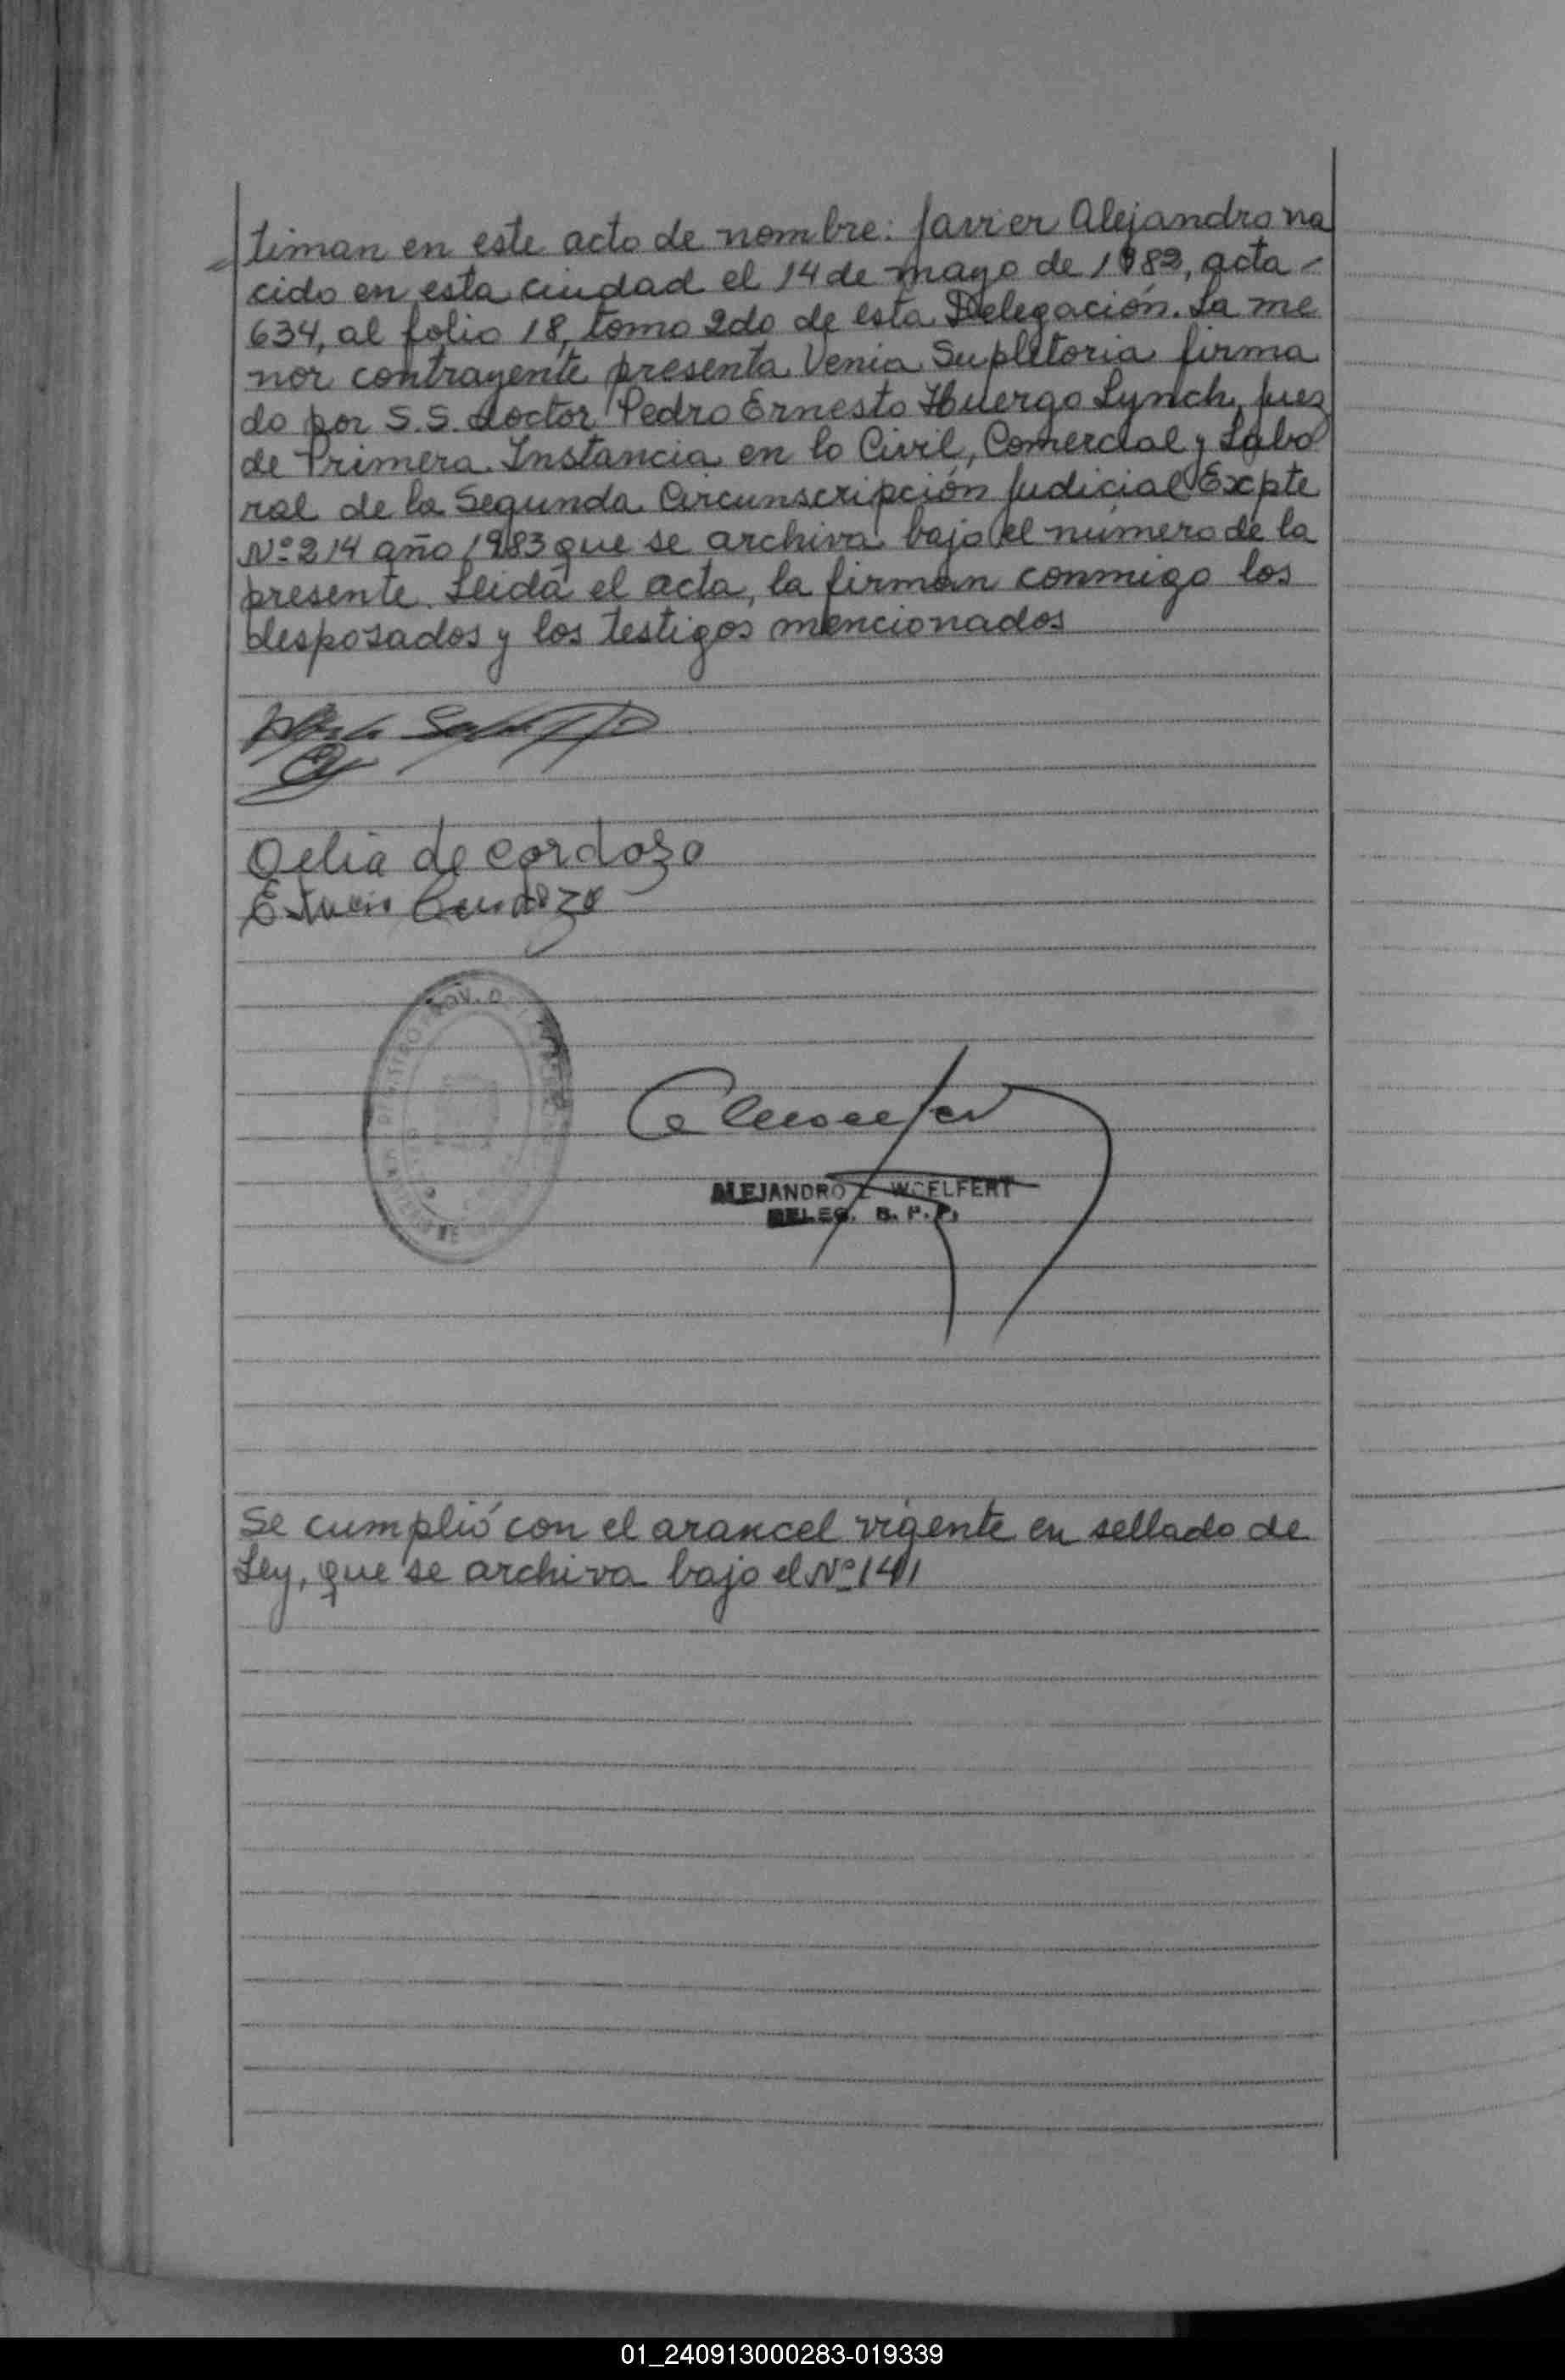 timan en este acto de nombre: Javier Alejandro na
cido en esta ciudad el 14 de mayo de 1982, acta -
634, al folio 18, tomo 2do de esta Delegación. La me
nor contrayente presenta Venia Supletoria firma
do por S.S. doctor Pedro Ernesto Huergo Lynch, Juez
de Primera Instancia en lo Civil, Comercial y Labo
ral de la Segunda Circunscripción Judicial Expte
Nº 214 año 1983 que se archiva bajo el número de la
presente. Leida el acta, la firman conmigo los
desposados y los testigos mencionados
Delia de Cordozo
Cardozo
ALEJANDRO WOELFERT
DELEG. R. P. P.
Se cumplió con el arancel vigente en sellado de
Ley, que se archiva bajo el Nº 141
01_240913000283-019339